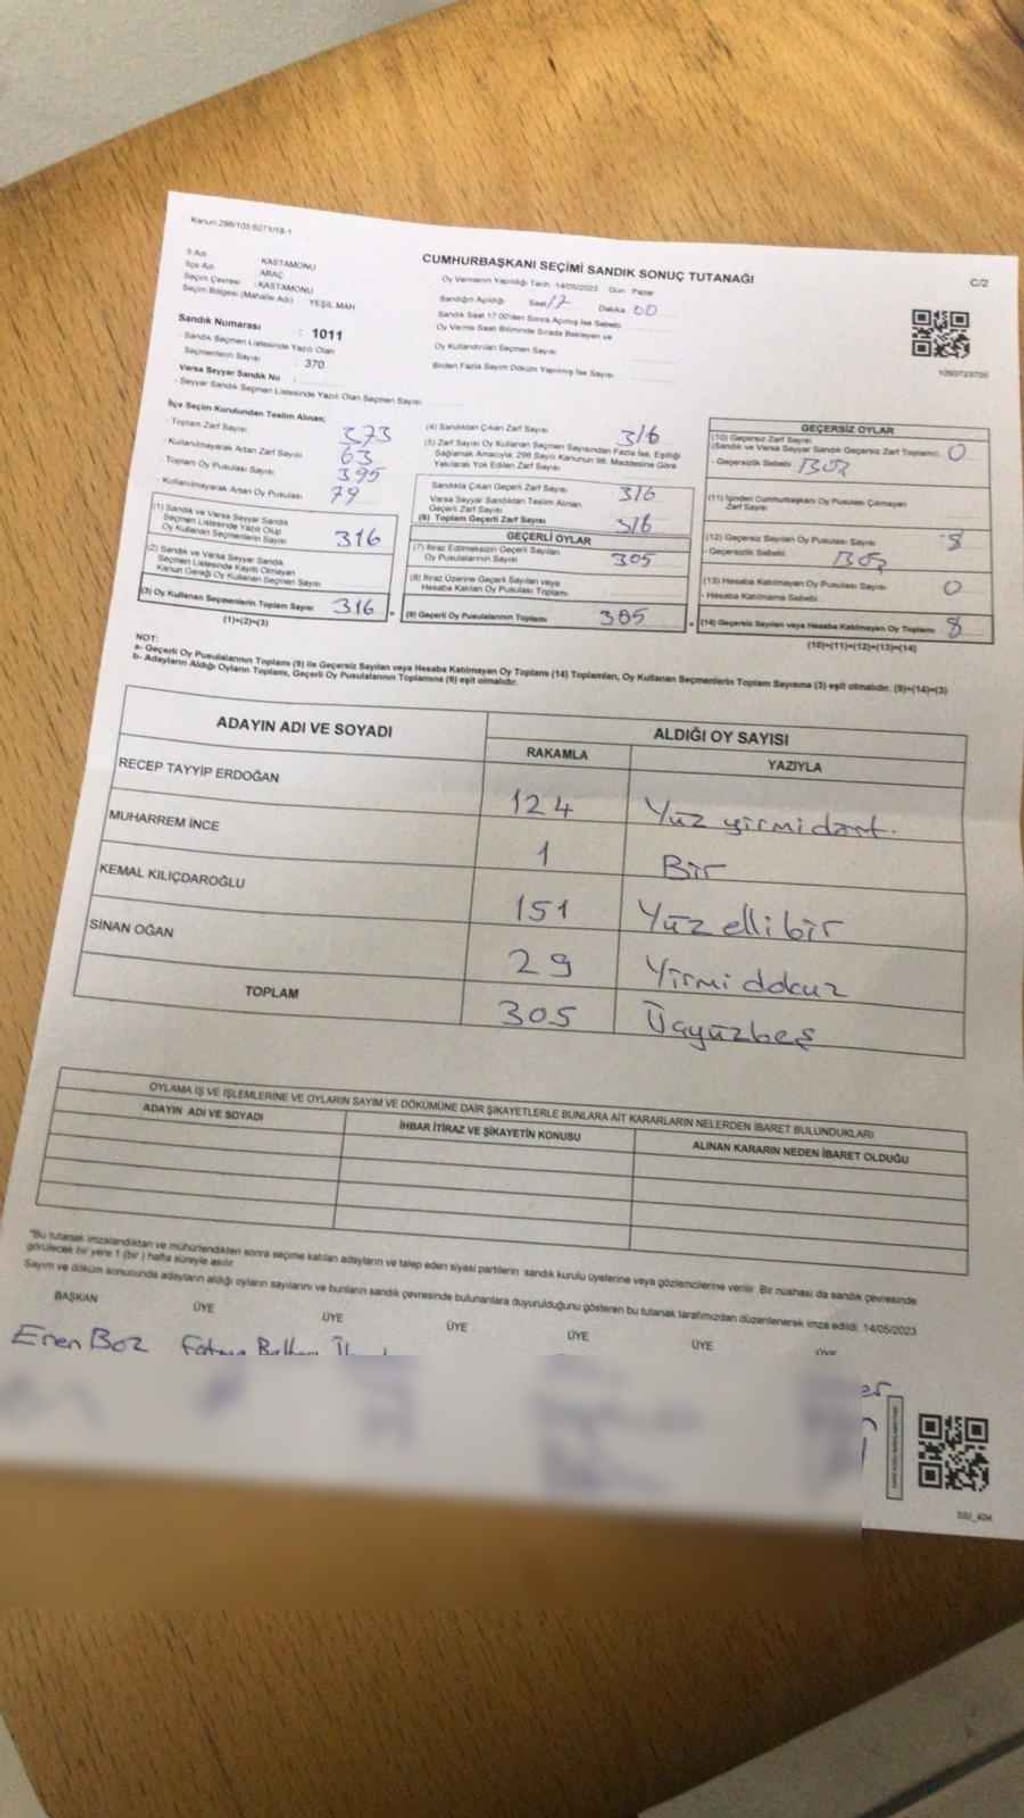 Kanun:298/105 6271/19-1
CUMHURBAŞKANI SEÇİMİ SANDIK SONUÇ TUTANAĞI
C/2
İli Adı KASTAMONU
İlçe Adı ARAÇ
Seçim Çevresi : KASTAMONU
Seçim Bölgesi (Mahalle Adı) YEŞİL MAH
Sandık Numarası : 1011
Sandık Seçmen Listesinde Yazılı Olan
Seçmenlerin Sayısı : 370
Varsa Seyyar Sandık No :
- Seyyar Sandık Seçmen Listesinde Yazılı Olan Seçmen Sayısı
Oy Vermenin Yapıldığı Tarih 14/05/2023 Gün Pazar
Sandığın Açıldığı Saat 17 Dakika 00
Sandık Saat 17.00'den Sonra Açılmış İse Sebebi
Oy Verme Saati Bitiminde Sırada Bekleyen ve
Oy Kullandırılan Seçmen Sayısı
Birden Fazla Sayım Döküm Yapılmış İse Sayısı
İlçe Seçim Kurulundan Teslim Alınan;
- Toplam Zarf Sayısı 373
- Kullanılmayarak Artan Zarf Sayısı 63
- Toplam Oy Pusulası Sayısı 395
- Kullanılmayarak Artan Oy Pusulası 79
(1) Sandık ve Varsa Seyyar Sandık
Seçmen Listesinde Yazılı Olup
Oy Kullanan Seçmenlerin Sayısı 316
(2) Sandık ve Varsa Seyyar Sandık
Seçmen Listesinde Kayıtlı Olmayan
Kanun Gereği Oy Kullanan Seçmen Sayısı
(3) Oy Kullanan Seçmenlerin Toplam Sayısı 316
(1)+(2)=(3)
(4) Sandıktan Çıkan Zarf Sayısı 316
(5) Zarf Sayısı Oy Kullanan Seçmen Sayısından Fazla İse, Eşitliği
Sağlamak Amacıyla, 298 Sayılı Kanunun 98. Maddesine Göre
Yakılarak Yok Edilen Zarf Sayısı
Sandıkta Çıkan Geçerli Zarf Sayısı 316
Varsa Seyyar Sandıktan Teslim Alınan
Geçerli Zarf Sayısı
(6) Toplam Geçerli Zarf Sayısı 316
GEÇERLİ OYLAR
(7) İtiraz Edilmeksizin Geçerli Sayılan
Oy Pusulalarının Sayısı 305
(8) İtiraz Üzerine Geçerli Sayılan veya
Hesaba Katılan Oy Pusulası Toplamı
(9) Geçerli Oy Pusulalarının Toplamı 305
GEÇERSİZ OYLAR
(10) Geçersiz Zarf Sayısı
(Sandık ve Varsa Seyyar Sandık Geçersiz Zarf Toplamı) 0
- Geçersizlik Sebebi
(11) İçinden Cumhurbaşkanı Oy Pusulası Çıkmayan
Zarf Sayısı
(12) Geçersiz Sayılan Oy Pusulası Sayısı 8
- Geçersizlik Sebebi BOŞ
(13) Hesaba Katılmayan Oy Pusulası Sayısı 0
- Hesaba Katılmama Sebebi
(14) Geçersiz Sayılan veya Hesaba Katılmayan Oy Toplamı 8
(10)+(11)+(12)+(13)=(14)
NOT:
a- Geçerli Oy Pusulalarının Toplamı (9) ile Geçersiz Sayılan veya Hesaba Katılmayan Oy Toplamı (14) Toplamları, Oy Kullanan Seçmenlerin Toplam Sayısına (3) eşit olmalıdır. (9)+(14)=(3)
b- Adayların Aldığı Oyların Toplamı, Geçerli Oy Pusulalarının Toplamına (9) eşit olmalıdır.
ADAYIN ADI VE SOYADI ALDIĞI OY SAYISI
RAKAMLA YAZIYLA
RECEP TAYYİP ERDOĞAN 124 Yüz yirmi dört.
MUHARREM İNCE 1 Bir
KEMAL KILIÇDAROĞLU 151 Yüz elli bir
SİNAN OĞAN 29 Yirmi dokuz
TOPLAM 305 Üçyüzbeş
OYLAMA İŞ VE İŞLEMLERİNE VE OYLARIN SAYIM VE DÖKÜMÜNE DAİR ŞİKAYETLERLE BUNLARA AİT KARARLARIN NELERDEN İBARET BULUNDUKLARI
ADAYIN ADI VE SOYADI İHBAR İTİRAZ VE ŞİKAYETİN KONUSU ALINAN KARARIN NEDEN İBARET OLDUĞU
"Bu tutanak imzalandıktan ve mühürlendikten sonra seçime katılan adayların ve talep eden siyasi partilerin sandık kurulu üyelerine veya gözlemcilerine verilir. Bir nüshası da sandık çevresinde
görülecek bir yere 1 (bir) hafta süreyle asılır
Sayım ve döküm sonucunda adayların aldığı oyların sayılarını ve bunların sandık çevresinde bulunanlara duyurulduğunu gösteren bu tutanak tarafımızdan düzenlenerek imza edildi. 14/05/2023
BAŞKAN ÜYE ÜYE ÜYE ÜYE ÜYE ÜYE
Eren Boz